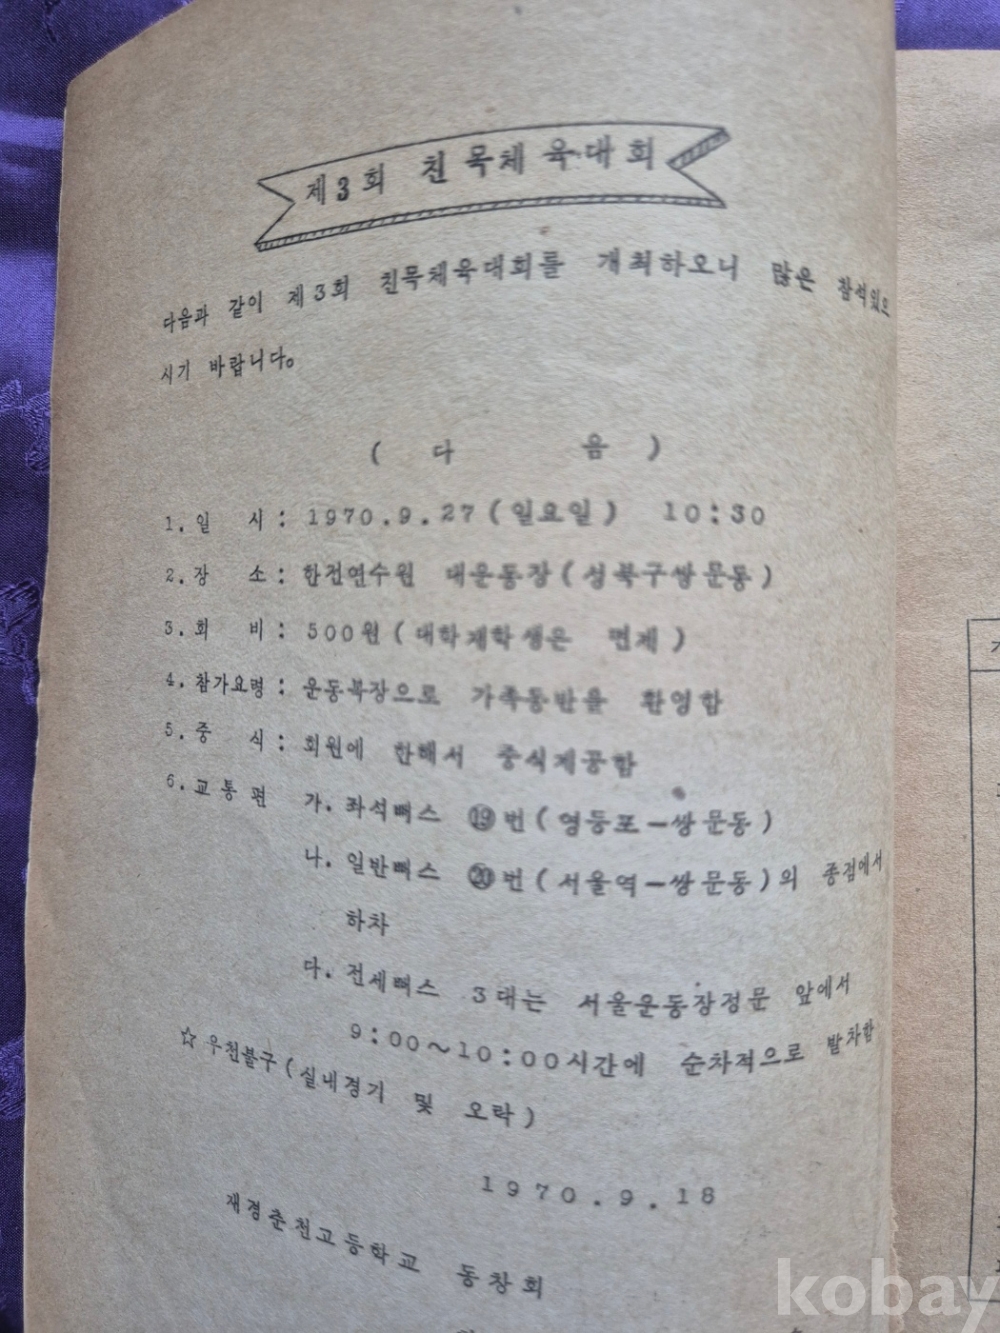 제3회 친목체육대회
다음과 같이 제3회 친목체육대회를 개최하오니 많은 참석있으
시기 바랍니다。
( 다 음 )
1. 일 시 : 1970.9.27(일요일) 10:30
2. 장 소 : 한전연수원 대운동장(성북구쌍문동)
3. 회 비 : 500원(대학재학생은 면제)
4. 참가요령 : 운동복장으로 가족동반을 환영함
5. 중 식 : 회원에 한해서 중식제공함
6. 교통편 가. 좌석뻐스 ⑲번(영등포-쌍문동)
나. 일반뻐스 ⑳번(서울역-쌍문동)의 종점에서
하차
다. 전세뻐스 3대는 서울운동장정문 앞에서
9:00~10:00시간에 순차적으로 발차함
☆ 우천불구(실내경기 및 오락)
1970.9.18
재경춘천고등학교 동창회
kobay